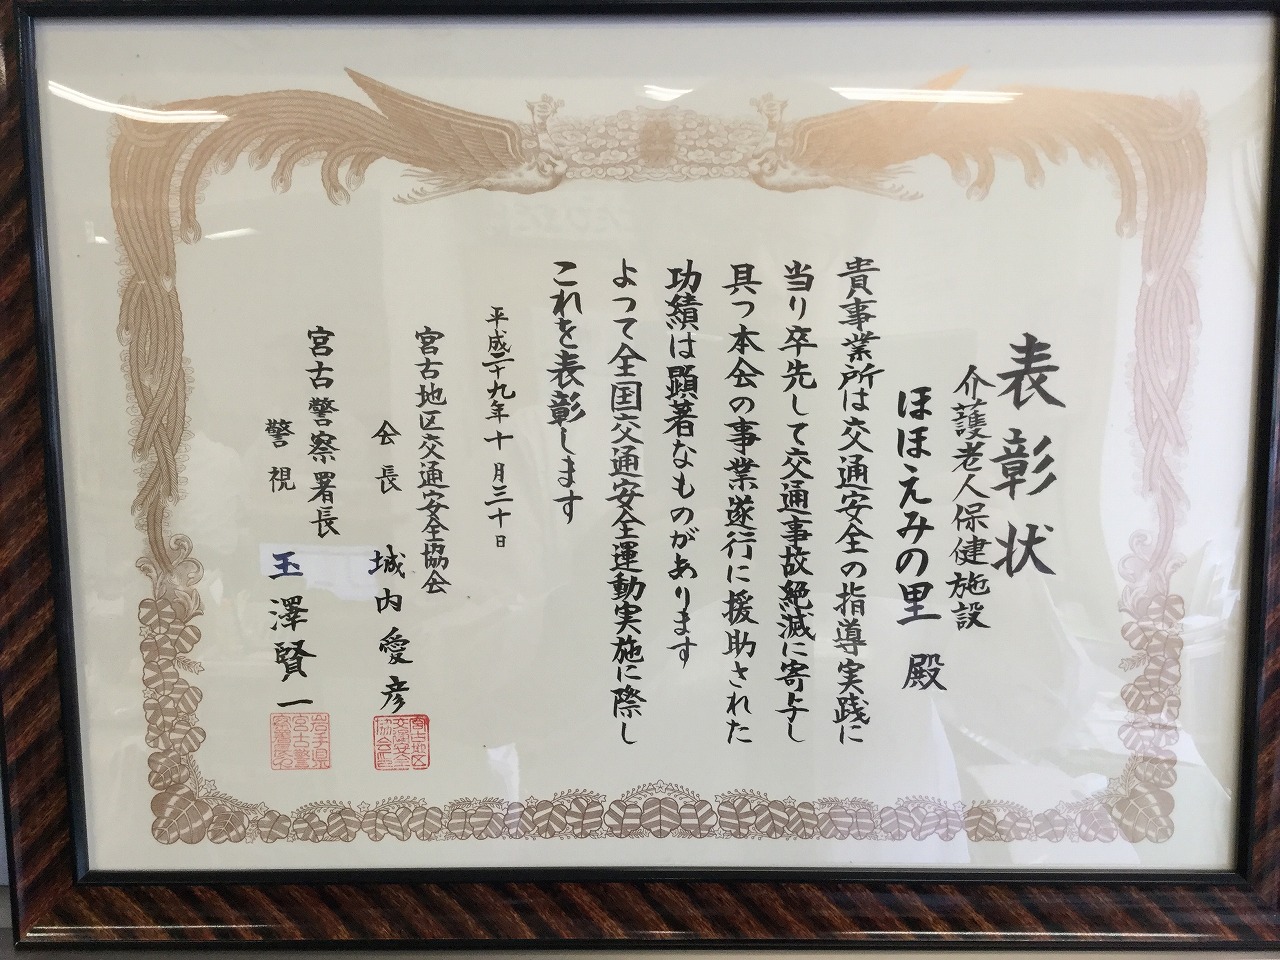 表彰状
介護老人保健施設
ほほえみの里 殿
貴事業所は交通安全の指導実践に
当り卒先して交通事故絶滅に寄与し
具つ本会の事業遂行に援助された
功績は顕著なものがあります
よつて全国交通安全運動実施に際し
これを表彰します
平成二十九年十月三十日
宮古地区交通安全協会
会長 城内愛彦
宮古警察署長
警視 玉澤賢一